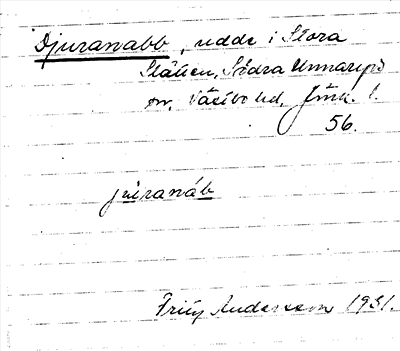 Djuranabb, udde i Stora
Slätten, Södra Unnaryds
sn, Västbo hd, Jönk. l.
56.
júranáb
Fritz Andersson 1931.